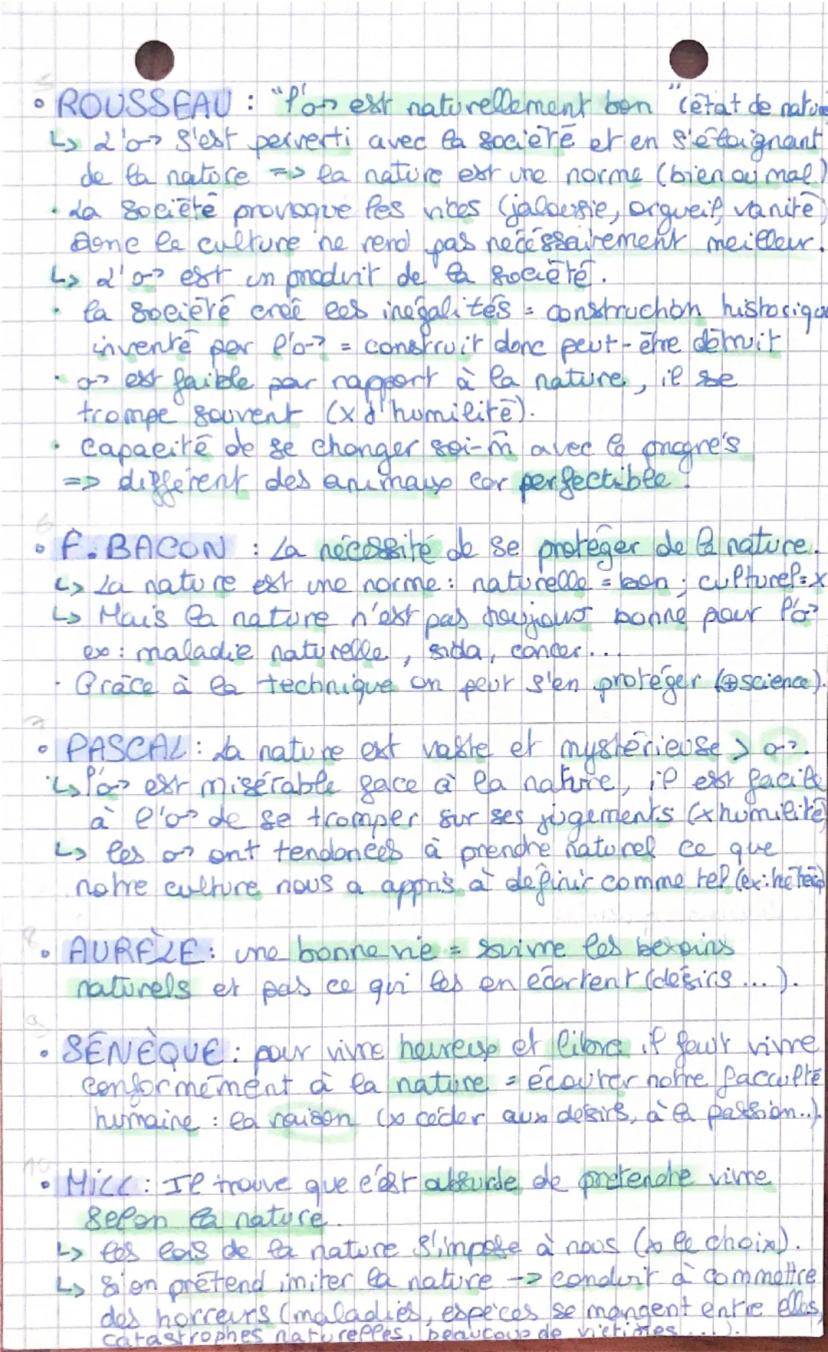 • ROUSSEAU : "l'♂ est naturellement bon" (état de nature
↳ L'♂ s'est perverti avec la société et en s'éloignant
de la nature => la nature est une norme (bien ou mal)
• La société provoque les vices (jalousie, orgueil, vanité)
donc la culture ne rend pas nécessairement meilleur.
↳ L'♂ est un produit de la société.
• la société créé les inégalités = construction historique
inventé par l'♂ = construit donc peut-être détruit
• ♂ est faible par rapport à la nature, il se
trompe souvent (x d'humilité).
• Capacité de se changer soi-m̂ avec le progrès
=> différent des animaux car perfectible.
• F. BACON : La nécessité de se protéger de la nature.
↳ La nature est une norme : naturelle = bon ; culturel = x
↳ Mais la nature n'est pas toujours bonne pour l'♂
ex : maladie naturelle, sida, cancer...
• Grâce à la technique on peut s'en protéger (⊕science).
• PASCAL : La nature est vaste et mystérieuse > ♂.
↳ l'♂ est misérable face à la nature, il est facile
à l'♂ de se tromper sur ses jugements (x humilité)
↳ les ♂ ont tendances à prendre naturel ce que
notre culture nous a appris à définir comme tel (ex : hétéo)
• AURÈLE : une bonne vie = suivre les besoins
naturels et pas ce qui les en écartent (désirs ...).
• SÉNÈQUE : pour vivre heureux et libre il faut vivre
conformément à la nature = écouter notre faculté
humaine : la raison (x céder aux désirs, à la passion..).
• Mill : Il trouve que c'est absurde de prétendre vivre
selon la nature.
↳ les lois de la nature s'impose à nous (x le choix).
↳ si on prétend imiter la nature -> conduit à commettre
des horreurs (maladies, espèces se mangent entre elles,
catastrophes naturelles, beaucoup de victimes ...).